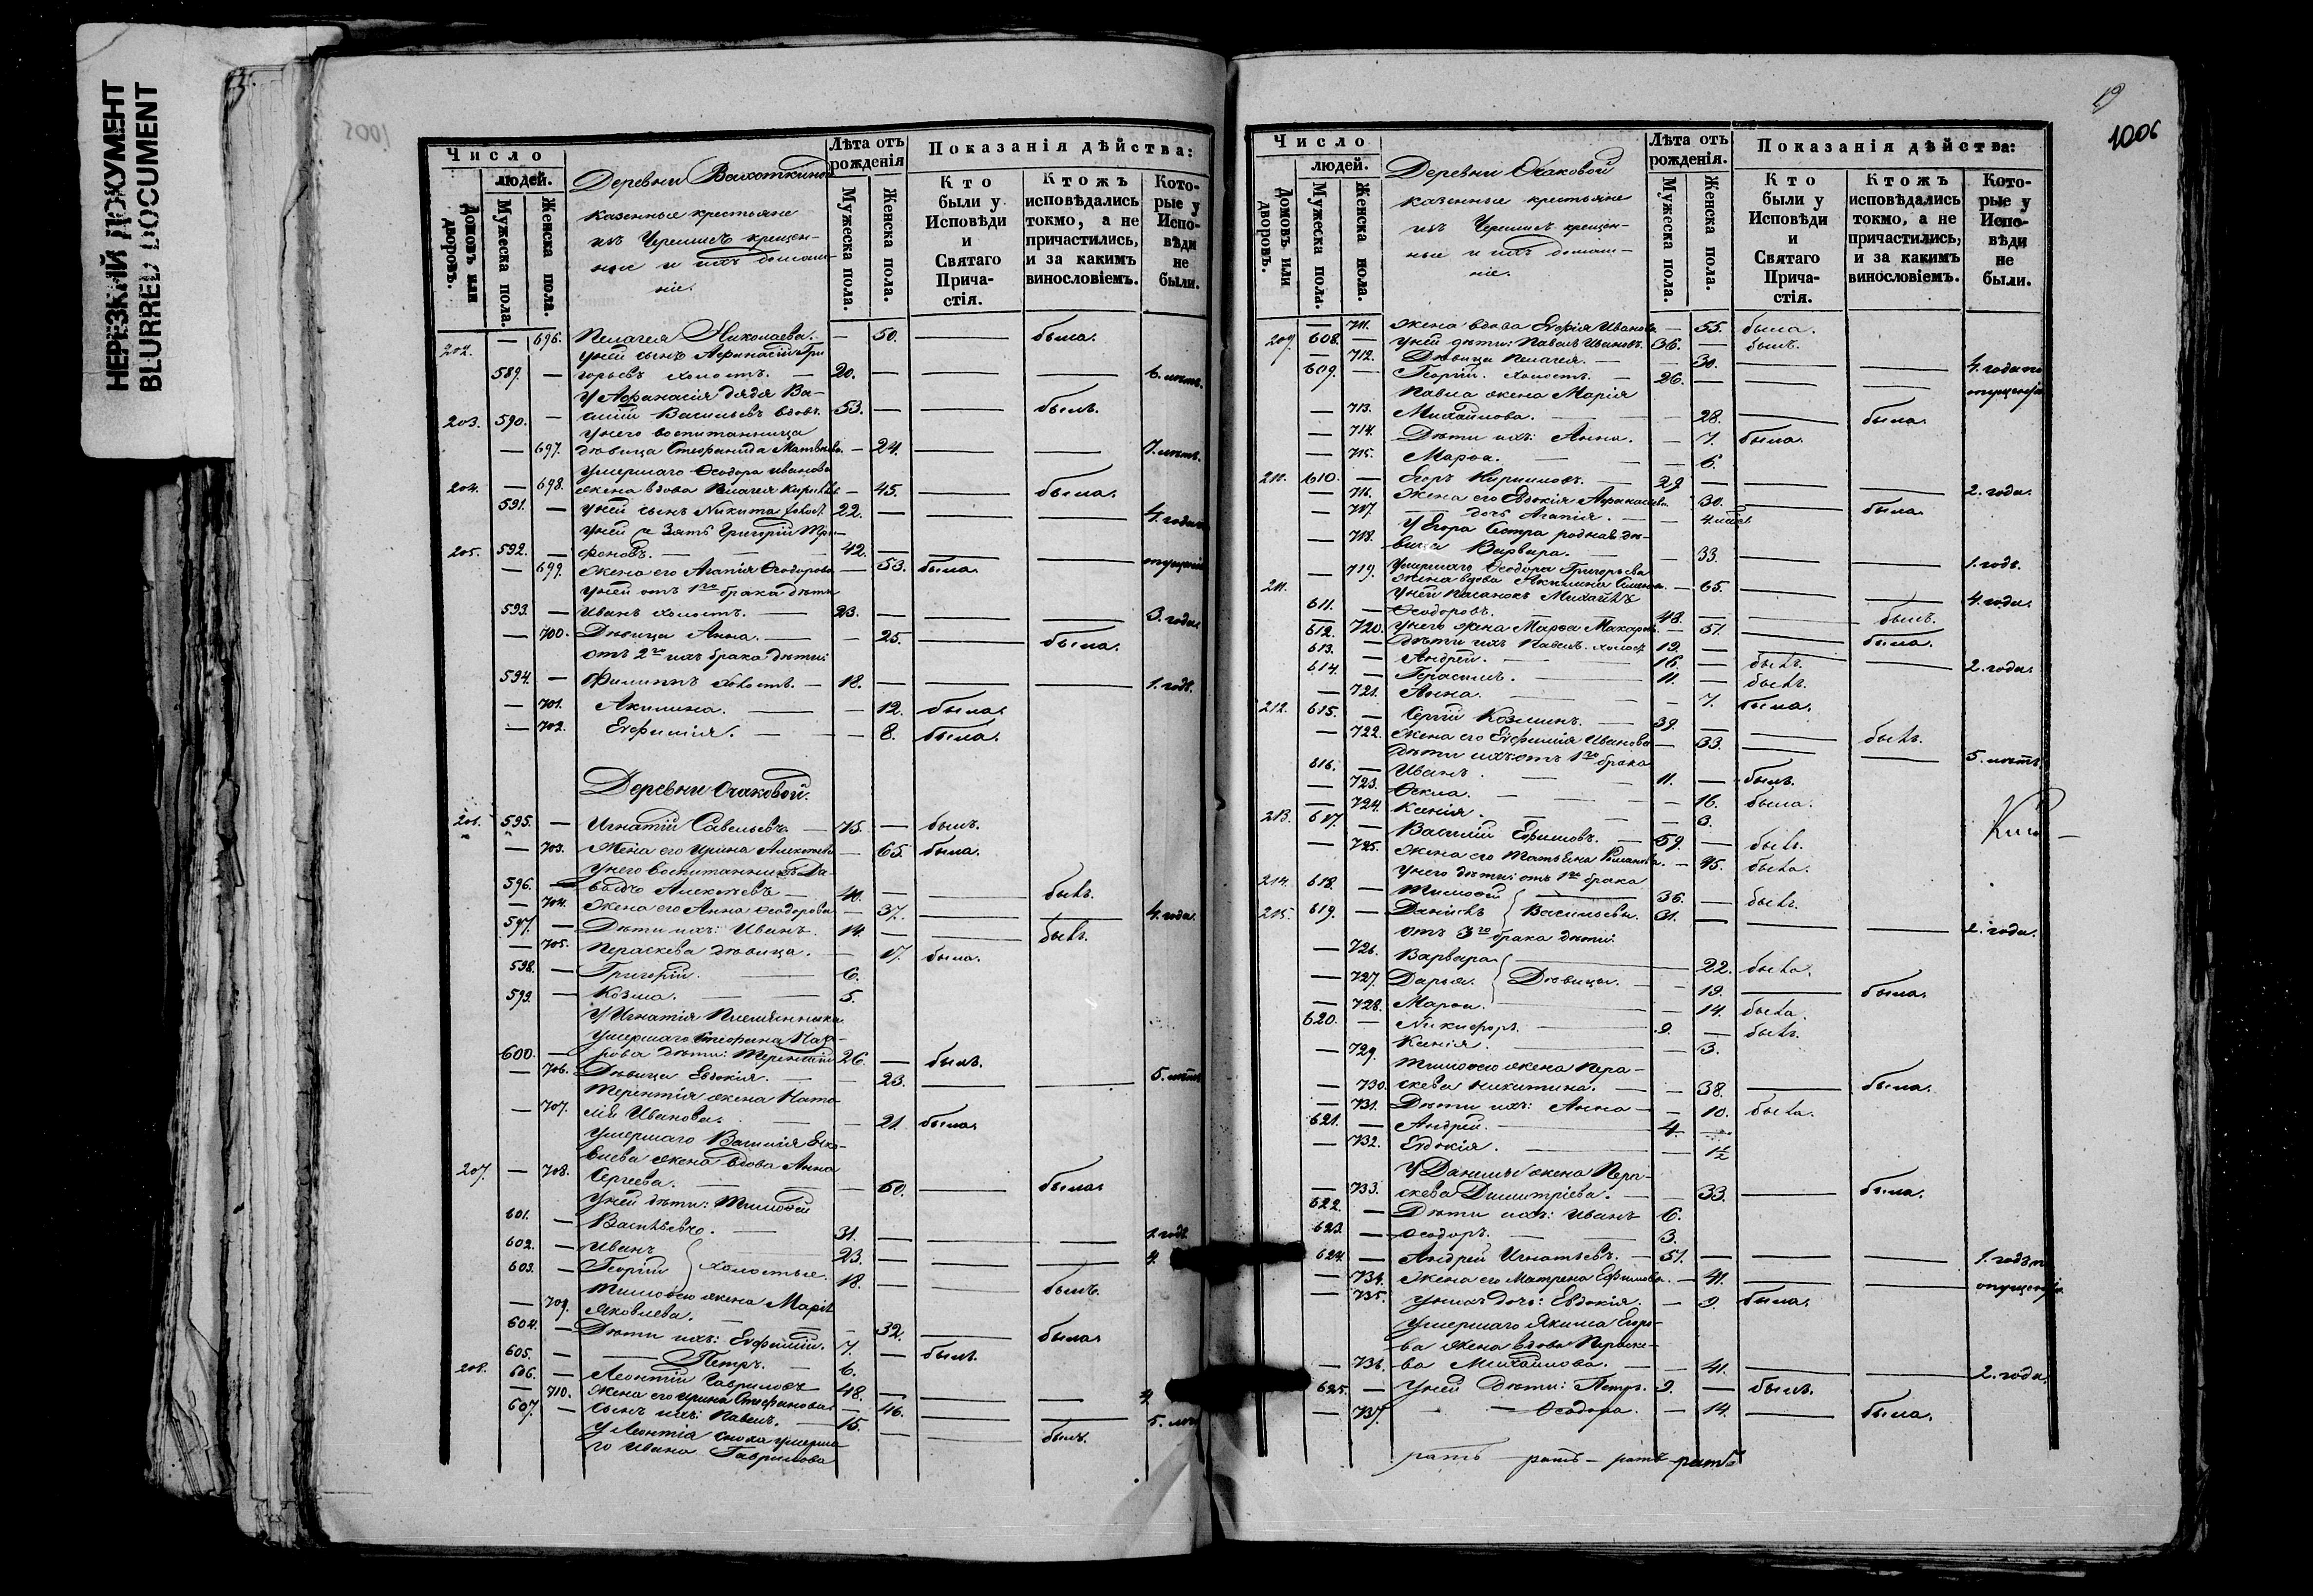 НЕРЕЗКИЙ ДОКУМЕНТ
BLURRED DOCUMENT
1005
Число
людей.
Домовъ или дворовъ.
Мужеска пола.
Женска пола.
казенные крестьяне
изъ Черемисъ крещен-
ные и ихъ домаш-
ніе.
Лѣта отъ рожденія
Мужеска пола.
Женска пола.
Показанія дѣйства:
Кто были у Исповѣди и Святаго Прича-стія.
Ктожъ исповѣдались токмо, а не причастились, и за какимъ винословіемъ.
Кото-рые у Испо-вѣди не были.
— 696. Пелагея Николаева. — 50. была.
202. У ней сынъ Афанасій Гри-
589. — горьевъ холостъ. — 20. — 6. лѣтъ.
У Афанасія дядя Ва-
203. 590. — силій Васильевъ вдовъ. 53. — былъ.
У него воспитанница
— 697. дѣвица Стефанида Матвѣева. — 24. 7. лѣтъ.
умершаго Ѳеодора Иванова
204. — 698. жена вдова Пелагея — 45. была.
591. — У ней сынъ Никита холост. 22. — 4. года
У ней и Зять Григорій Три-
205. 592. — фоновъ. — 42. —
— 699. Жена его Агапія Ѳеодорова — 53. была.
У ней отъ 1го брака дѣти
593. — Иванъ холостъ. — 23. — 3. года.
— 700. Дѣвица Анна. — 25. была.
отъ 2го ихъ брака дѣти:
594. — Филиппъ холостъ. — 18. — 1. годъ.
— 701. Акилина. — 12. была.
— 702. Евфимія. — 8. была.
Деревни Очаковой.
206. 595. — Игнатій Савельевъ — 75. — былъ.
— 703. Жена его Ирина Алексѣева — 65. была.
У него воспитанникъ Да-
596. — выдъ Алексѣевъ — 40. — былъ.
— 704. Жена его Анна Ѳеодорова — 37. 4. года.
597. — Дѣти ихъ: Иванъ. — 14. — былъ.
— 705. Параскева дѣвица. — 17. была.
598. — Григорій. — 6.
599. — Козма. — 5.
У Игнатія Племянника
умершаго Стефана
600. — дѣти: Терентій 26. — былъ.
— 706. Дѣвица Евдокія. — 23. 5. лѣтъ
Терентія жена Ната-
— 707. лія Иванова. — 21. была.
Умершаго Василія
жена вдова Анна
207. — 708. Сергеева. — 60. была.
У ней дѣти: Тимофей
601. — Васильевъ. — 31. — 1. годъ
602. — Иванъ 23. — 4.
603. — Георгій холостые. 18. — былъ.
Тимофея жена Марія
— 709. Яковлева. — 32. была.
604. — Дѣти ихъ: Евфимій. 7. — былъ.
605. — Петръ. — 6.
208. 606. — Леонтій Гавриловъ 48. —
— 710. Жена его Ирина Стефанова — 46. 4
607. — Сынъ ихъ: Павелъ. — 15. — былъ. 5.
У Леонтія сноха умерша-
го Ивана Гаврилова
19
1006
Число
людей.
Домовъ или дворовъ.
Мужеска пола.
Женска пола.
Деревни Очаковой
казенные крестьяне
изъ Черемисъ крещен-
ные и ихъ домаш-
ніе.
Лѣта отъ рожденія.
Мужеска пола.
Женска пола.
Показанія дѣйства:
Кто были у Исповѣди и Святаго Прича-стія.
Ктожъ исповѣдались токмо, а не причастились, и за какимъ винословіемъ.
Кото-рые у Испо-вѣди не были.
— 711. жена вдова Иванова — 55. была.
209. 608. — У ней дѣти: Павелъ Ивановъ. 36. — былъ.
— 712. Дѣвица Пелагея. — 30. 4. года по
609. — Георгій. холостъ. — 26. — опущенію
Павла жена Марія
— 713. Михайлова. — 28. была.
— 714. Дѣти ихъ: Анна. — 7. была.
— 715. Марфа. — 6.
210. 610. — Егоръ Кириловъ. — 29 — 2. года.
— 716. Жена его Евдокія Афанасьева. 30. была.
— 717. — дочь Агапія. —
У Егора Сестра родная дѣ-
— 718. вица Варвара. — 33. 1. годъ.
Умершаго Ѳеодора Григорьева
211. — 719. жена вдова Акилина — 65. 4. года.
У ней пасынокъ Михайлъ
611. — Ѳеодоровъ. — 48. — былъ.
— 720. У него жена Марфа Макарова. — 51. была.
612. — дѣти ихъ Павелъ. холост. 19. — 2. года.
613. — Андрей. — 16. — былъ.
614. — Герасимъ. — 11. — былъ.
— 721. Анна. — 7. была.
212. 615. — Сергій Козминъ. — 39. — былъ.
— 722. Жена его Евфимія Иванова — 33. 5. лѣтъ.
дѣти ихъ отъ 1го брака
616. — Иванъ. — 11. — былъ.
— 723. Ѳекла. — 16. была.
— 724. Ксенія. — 3.
213. 617. — Василій Ефимовъ. — 59. — былъ.
— 725. Жена его Татьяна Романова. — 45. была.
У него дѣти отъ 1го брака
214. 618. — Тимофей 36. — былъ.
215. 619. — Даніилъ Васильевы. 31. — 2. года.
отъ 3го брака дѣти:
— 726. Варвара 22. была.
— 727. Дарья. Дѣвицы. — 19. была.
— 728. Марфа. — 14. была.
620. — Никифоръ. — 9. — былъ.
— 729. Ксенія. — 3.
Тимофея жена Пара-
— 730. скева Никитина. — 38. была.
— 731. Дѣти ихъ: Анна — 10. была.
621. — Андрей. — 4. —
— 732. Евдокія. — 1½
У Данилы жена Пара-
— 733. скева Димитріева. — 33. была.
622. — Дѣти ихъ: Иванъ 6.
623. — Ѳеодоръ. — 3.
624. — Андрей Игнатьевъ. — 51. — 1. годъ по
— 734. Жена его Матрена Ефимова. — 41. опущенію
— 735. У нихъ дочь: Евдокія. — 9. была.
Умершаго Якима Егоро-
ва жена вдова Параске-
— 736. ва Михайлова. — 41. 2. года.
625. — У ней Дѣти: Петръ. 9. — былъ.
— 737. — Ѳеодора. — 14. была.